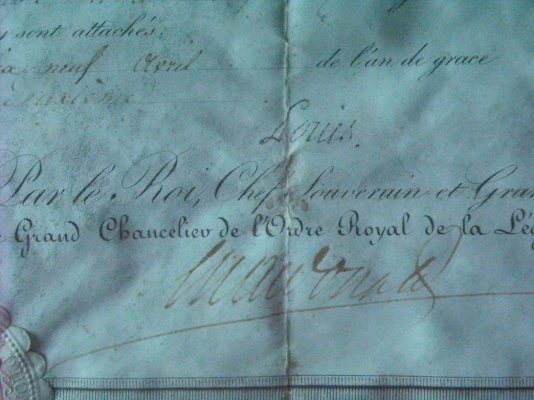 y sont attachés.
neuf Avril de l'an de grace
Louis.
Par le Roi, Chef Souverain et Gran
Grand Chancelier de l'Ordre Royal de la Lég
Macdonald